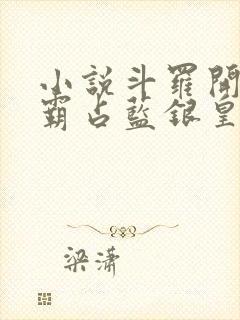 小說斗羅開
霸占藍銀皇
梁瀟